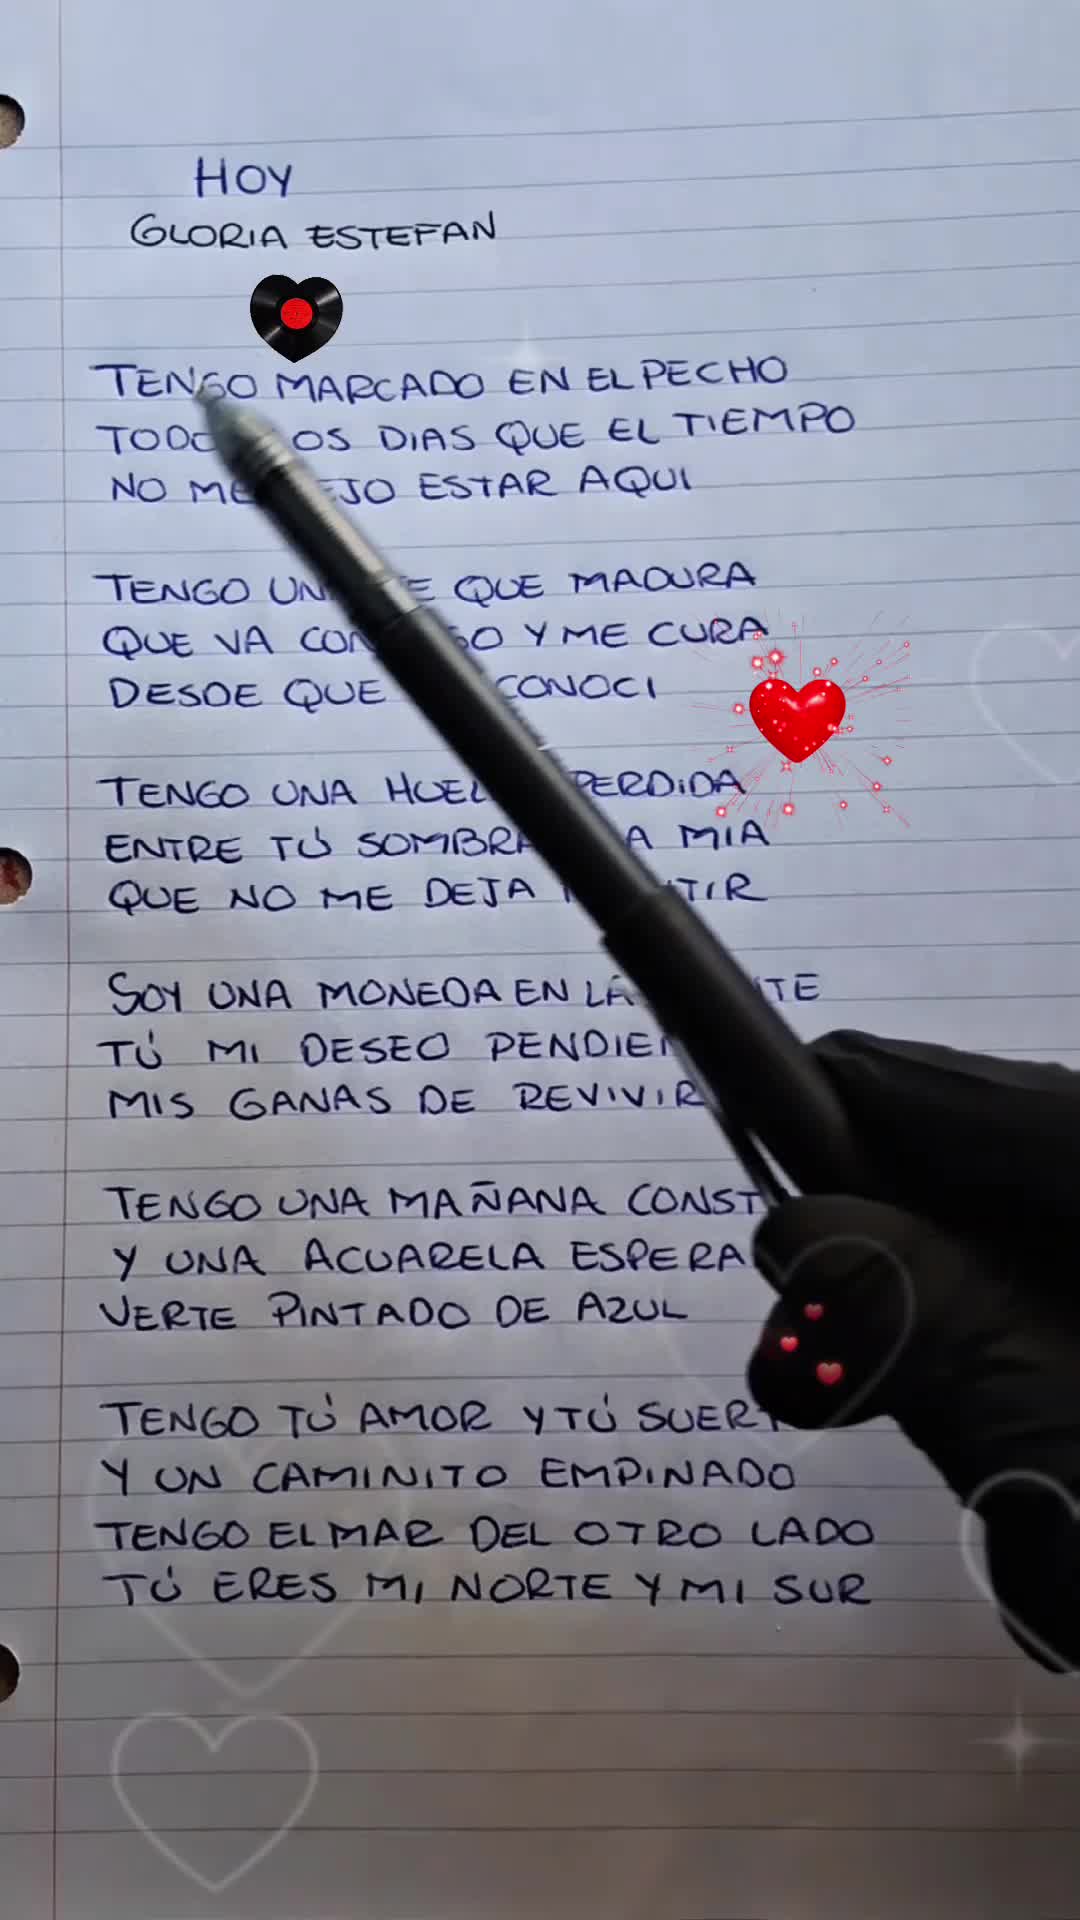 HOY
GLORIA ESTEFAN
TENGO MARCADO EN EL PECHO
DIAS QUE EL TIEMPO
NO ESTAR AQUI
TENGO QUE MADURA
QUE VA Y ME CURA
DESDE QUE CONOCI
TENGO UNA PERDIDA
ENTRE TÚ MIA
QUE NO ME DEJA
SOY UNA MONEDA EN
TÚ MI DESEO
MIS GANAS DE REVIVIR
TENGO UNA MAÑANA
Y UNA ACUARELA
VERTE PINTADO DE AZUL
TENGO TÚ AMOR Y TÚ
Y UN CAMINITO EMPINADO
TENGO EL MAR DEL OTRO LADO
TÚ ERES MI NORTE Y MI SUR